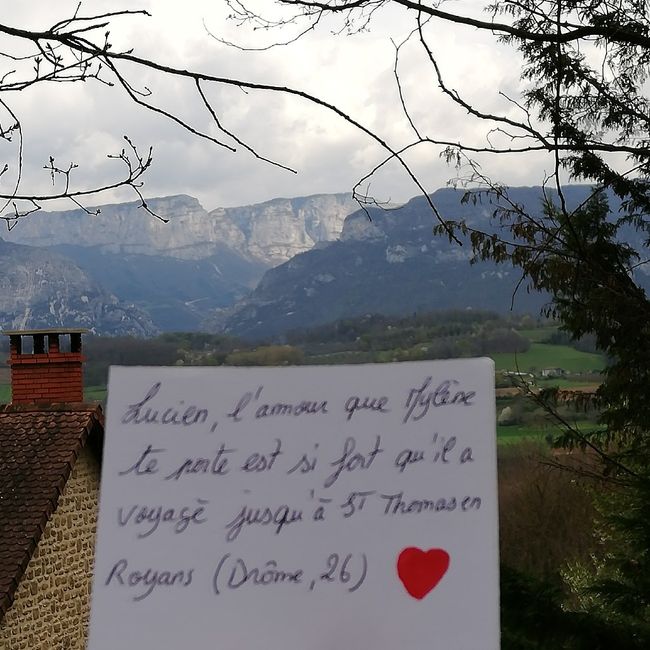 Lucien, l'amour que Mylène
te porte est si fort qu'il a
voyagé jusqu'à ST Thomas en
Royans (Drôme, 26)